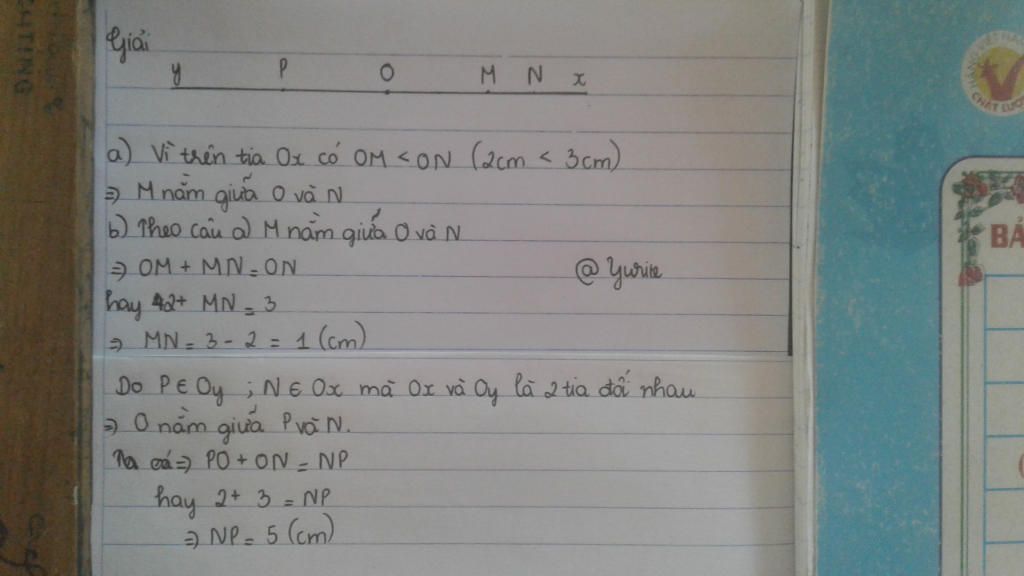 Giải
y P O M N x
a) Vì trên tia Ox có OM < ON (2cm < 3cm)
⇒ M nằm giữa O và N
b) Theo câu a) M nằm giữa O và N
⇒ OM + MN = ON
@ Yurite
hay 2 + MN = 3
⇒ MN = 3 - 2 = 1 (cm)
Do P ∈ Oy ; N ∈ Ox mà Ox và Oy là 2 tia đối nhau
⇒ O nằm giữa P và N.
Ta có ⇒ PO + ON = NP
hay 2 + 3 = NP
⇒ NP = 5 (cm)
CHẤT LƯỢ
BẢ